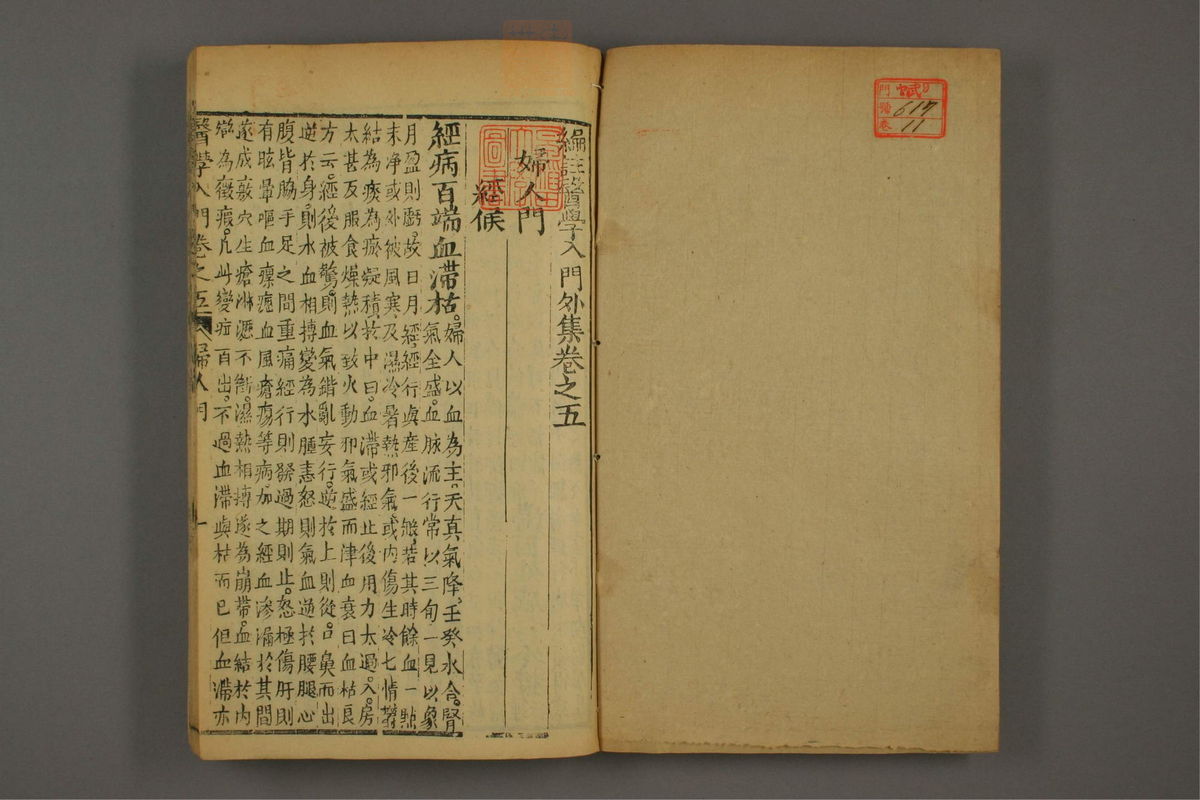 門
號 617
卷 11
編註醫學入門外集卷之五
婦人門
經候
經病百端血滯枯。婦人以血為主。天真氣降。壬癸水合。腎
氣全盛。血脉流行常以三旬一見以象
月盈則虧。故曰月經。經行與產後一般。若其時餘血一點
未净或外被風寒及濕冷暑熱邪氣。或内傷生冷七情鬱
結為痰為瘀凝積於中曰。血滯或經止後用力太過。入房
太甚及服食燥熱以致火動邪氣盛而津血衰曰血枯良
方云。經後被驚。則血氣錯亂妄行。逆於上則從口鼻而出
逆於身。則水血相搏變為水腫恚怒則氣血逆於腰腿心
腹背脇手足之間重痛經行則發過期則止。怒極傷肝則
有眩暈嘔血瘰癧血風瘡瘍等病加之經血滲漏於其間
遂成竅穴生瘡淋瀝不斷。濕熱相搏遂為崩帶。血結於内
變為癥瘕。凡此變症百出。不過血滯與枯而已但血滯亦
醫學入門卷之五 婦人門 一